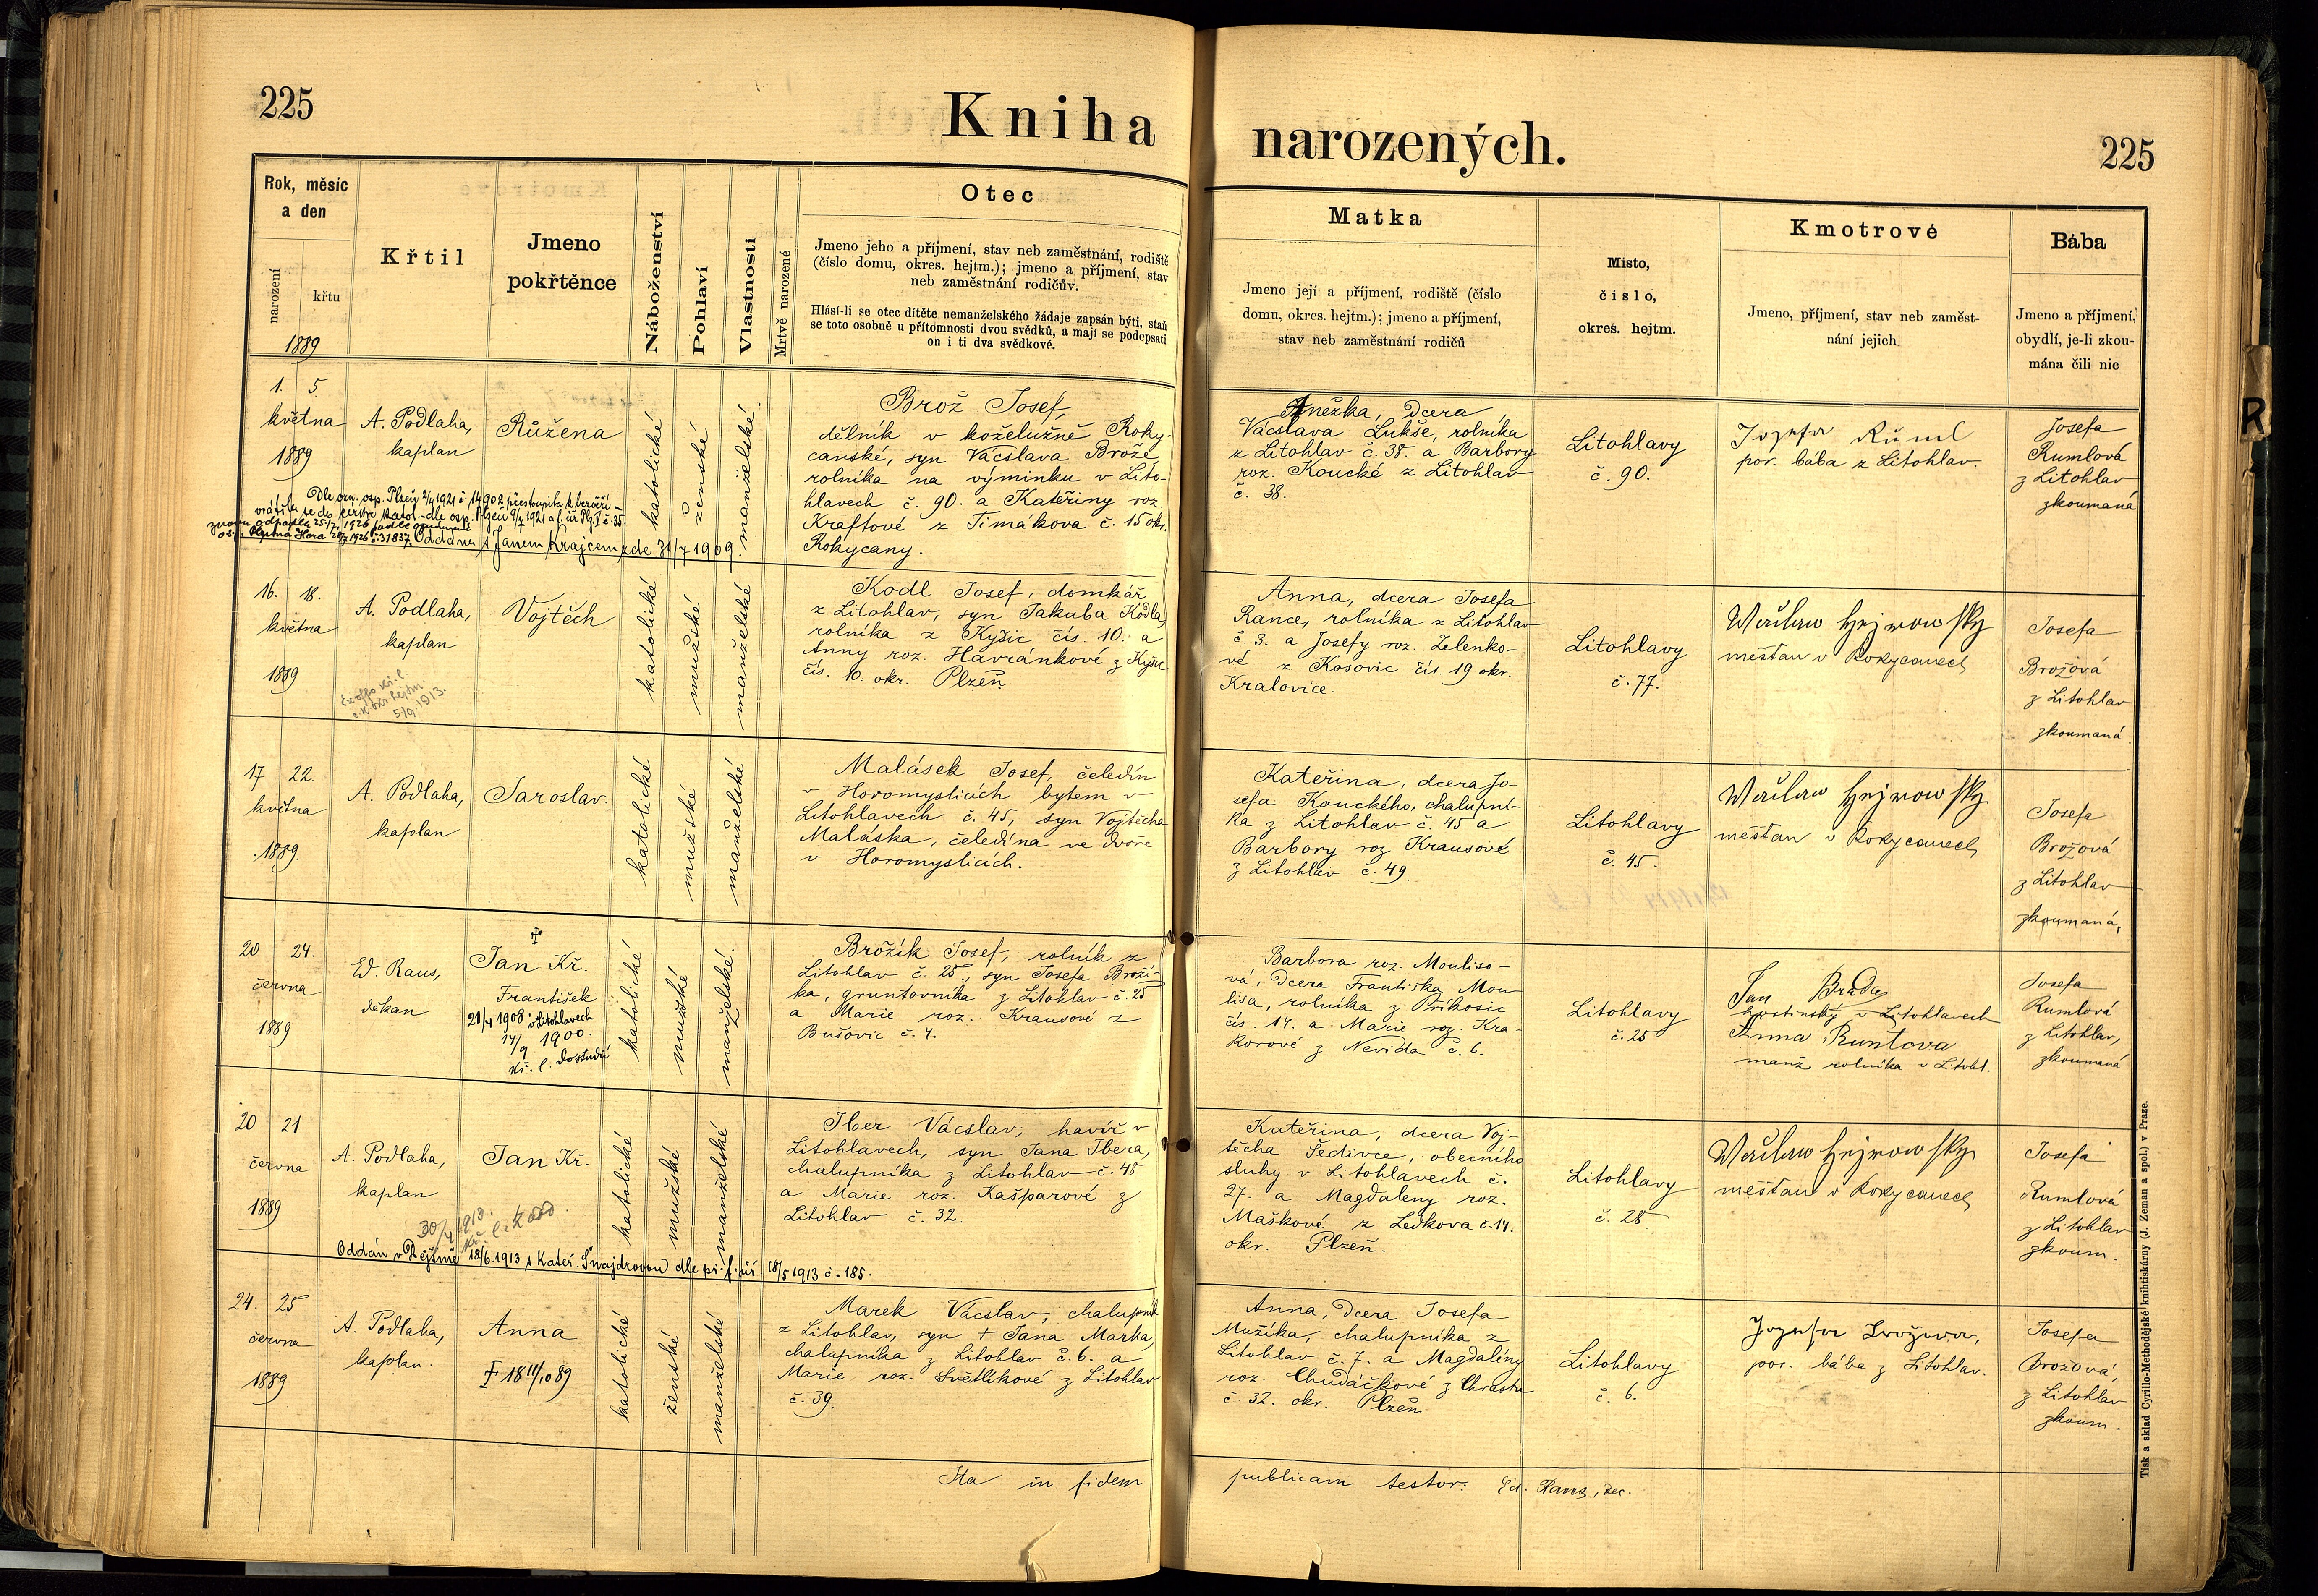 225
Kniha narozených.
225
Rok, měsíc
a den
narození
křtu
1889
Křtil
Jmeno
pokřtěnce
Náboženství
Pohlaví
Vlastnosti
Mrtvě narozené
Otec
Jmeno jeho a příjmení, stav neb zaměstnání, rodiště
(číslo domu, okres. hejtm.); jmeno a příjmení, stav
neb zaměstnání rodičův.
Hlásí-li se otec dítěte nemanželského žádaje zapsán býti, staň
se toto osobně u přítomnosti dvou svědků, a mají se podepsati
on i ti dva svědkové.
Matka
Jmeno její a příjmení, rodiště (číslo
domu, okres. hejtm.); jmeno a příjmení,
stav neb zaměstnání rodičů
Místo,
číslo,
okres. hejtm.
Kmotrové
Jmeno, příjmení, stav neb zaměst-
nání jejich
Bába
Jmeno a příjmení,
obydlí, je-li zkou-
mána čili nic
1. 5
května
1889
A. Podlaha,
kaplan
Růžena
katolické
ženské
manželské
Brož Josef,
dělník v koželužně Roky-
canské, syn Vácslava Brože
rolníka na výminku v Lito-
hlavech č. 90. a Kateřiny roz.
Kraftové z Timákova č. 15 okr.
Rokycany.
Anežka, dcera
Vácslava Lukše, rolníka
z Litohlav č. 38. a Barbory
roz. Koucké z Litohlav
č. 38.
Litohlavy
č. 90.
Jozefa Ruml
por. bába z Litohlav.
Josefa
Rumlová
z Litohlav
zkoumaná
Dle ozn. osp. Plzeň 2/4 1921 č. 14902 přestoupila k bezvěří –
vrátila se do církve katol. – dle osp. Plzeň 9/7 1921
znovu odpadla 25/7 1926
28/7 1926 č. 31837. Oddána s Janem Krajcem, zde 31/7 1909.
16. 18.
května
1889
A. Podlaha,
kaplan
5/9 1913.
Vojtěch
katolické
mužské
manželské
Kodl Josef, domkář
z Litohlav, syn Jakuba Kodla,
rolníka z Kyšic čís. 10. a
Anny roz. Havránkové z Kyšic
čís. 10. okr. Plzeň.
Anna, dcera Josefa
Rance, rolníka z Litohlav
č. 3. a Josefy roz. Zelenko-
vé z Kosovic čís. 19 okr.
Kralovice.
Litohlavy
č. 77.
Wáclaw Hejrowsky
měšťan v Rokycanech
Josefa
Brožová
z Litohlav
zkoumaná
17 22.
května
1889.
A. Podlaha,
kaplan
Jaroslav.
katolické
mužské
manželské
Malásek Josef, čeledín
v Horomyslicích bytem v
Litohlavech č. 45, syn Vojtěcha
Maláska, čeledína ve dvoře
v Horomyslicích.
Kateřina, dcera Jo-
sefa Kouckého, chalupní-
ka z Litohlav č. 45 a
Barbory roz Krausové
z Litohlav č. 49.
Litohlavy
č. 45.
Wáclaw Hejrowsky
měšťan v Rokycanech
Josefa
Brožová
z Litohlav
zkoumaná,
20 24.
června
1889
Ed. Raus,
děkan
Jan Kř.
František
21/4 1908 v Litohlavech
14/9 1900.
kř. l.
katolické
mužské
manželské.
Brožík Josef, rolník z
Litohlav č. 25., syn Josefa Broží-
ka, gruntovníka z Litohlav č. 25
a Marie roz. Krausové z
Bušovic č. 4.
Barbora roz. Mouliso-
vá, dcera Františka Mou-
lisa, rolníka z Příkosic
čís. 14. a Marie roz. Kra-
korové z Nevida č. 6.
Litohlavy
č. 25
Jan Brada
hostinský v Litohlavech
Anna Runtova
manž rolníka v Litohl.
Josefa
Rumlová
z Litohlav,
zkoumaná
20 21
června
1889
A. Podlaha,
kaplan
Jan Kř.
30/4 1913.
katolické
mužské
manželské
Iber Vácslav, havíř v
Litohlavech, syn Jana Ibera,
chalupníka z Litohlav č. 45.
a Marie roz. Kašparové z
Litohlav č. 32.
Kateřina, dcera Voj-
těcha Šedivce, obecního
sluhy v Litohlavech č.
27. a Magdaleny roz.
Maškové z Ledkova č. 14.
okr. Plzeň.
Litohlavy
č. 28.
Wáclaw Hejrowsky
měšťan v Rokycanech
Josefa
Rumlová
z Litohlav
zkoum.
Oddán v 18/6. 1913 s Kateř. Šnajdrovou dle př. f. úř. 18/5 1913 č. 185.
24. 25
června
1889
A. Podlaha,
kaplan.
Anna
† 18 11/10 89
katolické
ženské
manželské
Marek Vácslav, chalupník
z Litohlav, syn † Jana Marka,
chalupníka z Litohlav č. 6. a
Marie roz. Světlíkové z Litohlav
č. 39.
Anna, dcera Josefa
Mužíka, chalupníka z
Litohlav č. 7. a Magdalény
roz. Chudáčkové z Chrastu
č. 32. okr. Plzeň
Litohlavy
č. 6.
Jozefa Brožowa,
por. bába z Litohlav.
Josefa
Brožová,
z Litohlav
zkoum.
Ita in fidem publicam testor. Ed. Raus, dec.
Tisk a sklad Cyrillo-Methodějské knihtiskárny (J. Zeman a spol.) v Praze.
R